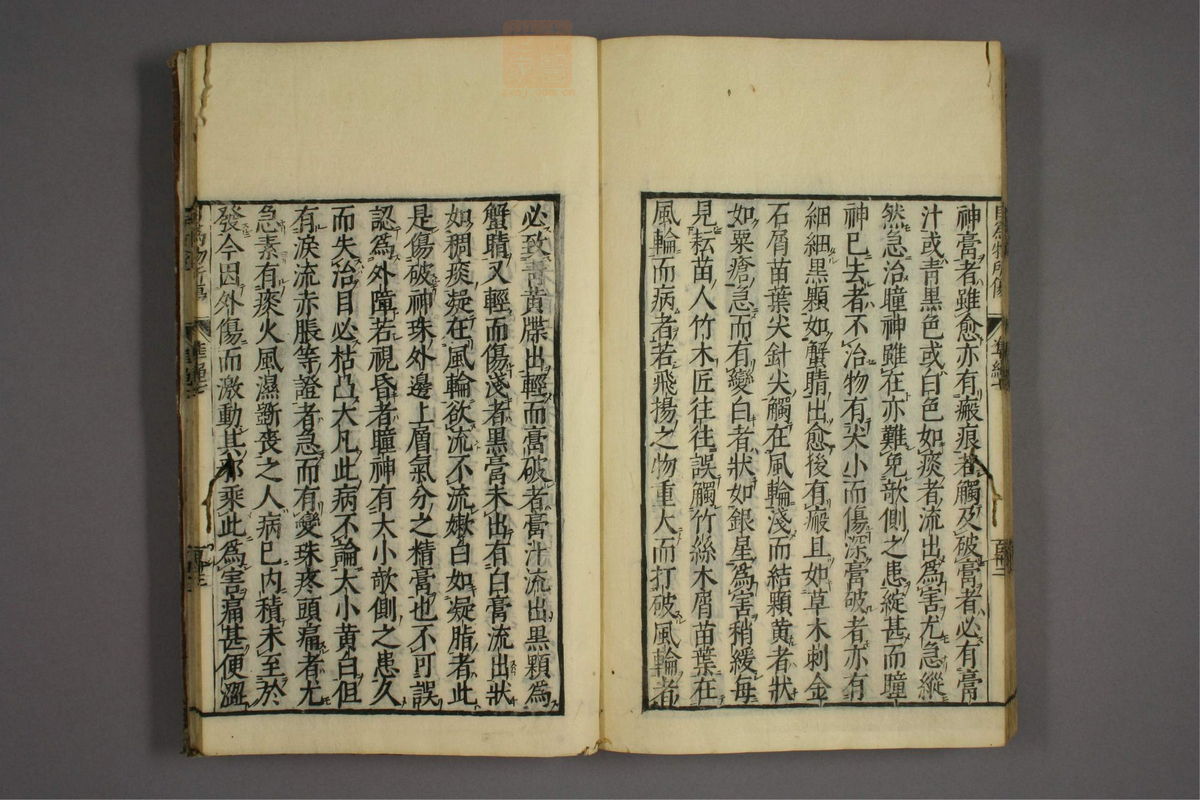 神膏者雖愈亦有瘢痕若觸及破膏者必有膏
汁或青黑色或白色如痰者流出為害尤急縱
然急治瞳神雖在亦難免欹側之患綻甚而瞳
神已去者不治物有尖小而傷深膏破者亦有
細細黑顆如蟹睛出愈後有瘢且如草木刺金
石屑苗葉尖針尖觸在風輪淺而結顆黃者狀
如粟瘡急而有變白者狀如銀星為害稍緩每
見耘苗人竹木匠往往誤觸竹絲木屑苗葉在
風輪而病者若飛揚之物重大而打破風輪者
必致青黃牒出輕而膏破者膏汁流出黑顆為
蟹睛又輕而傷淺者黑膏未出有白膏流出狀
如稠痰凝在風輪欲流不流嫩白如凝脂者此
是傷破神珠外邊上層氣分之精膏也不可誤
認為外障若視昏者瞳神有大小欹側之患久
而失治目必枯凸大凡此病不論大小黃白但
有淚流赤脹等證者急而有變珠疼頭痛者尤
急素有痰火風濕斵喪之人病已內積未至於
發今因外傷而激動其邪乘此為害痛甚便澀